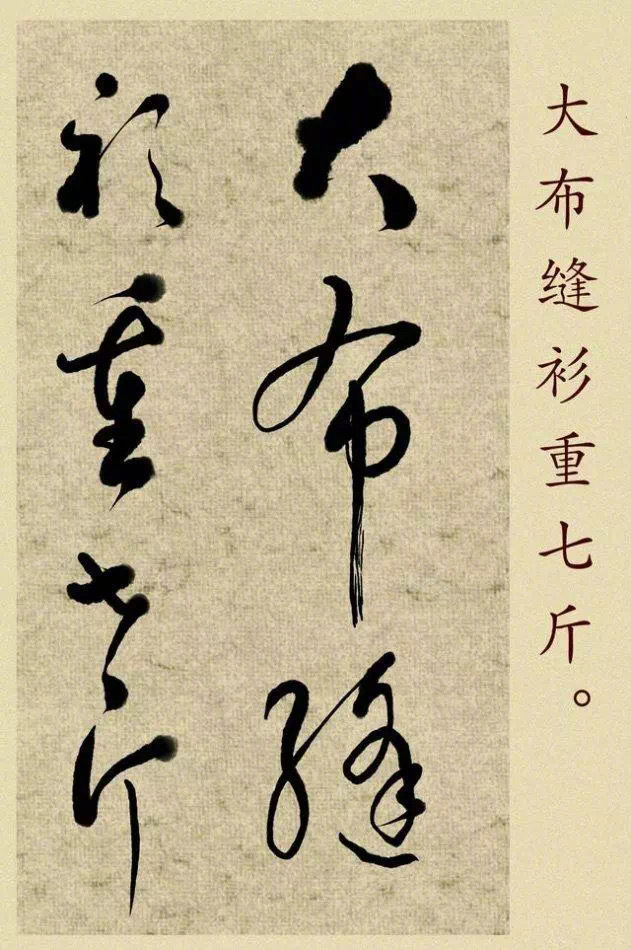 大布缝衫重七斤。
大布缝
衫重七斤